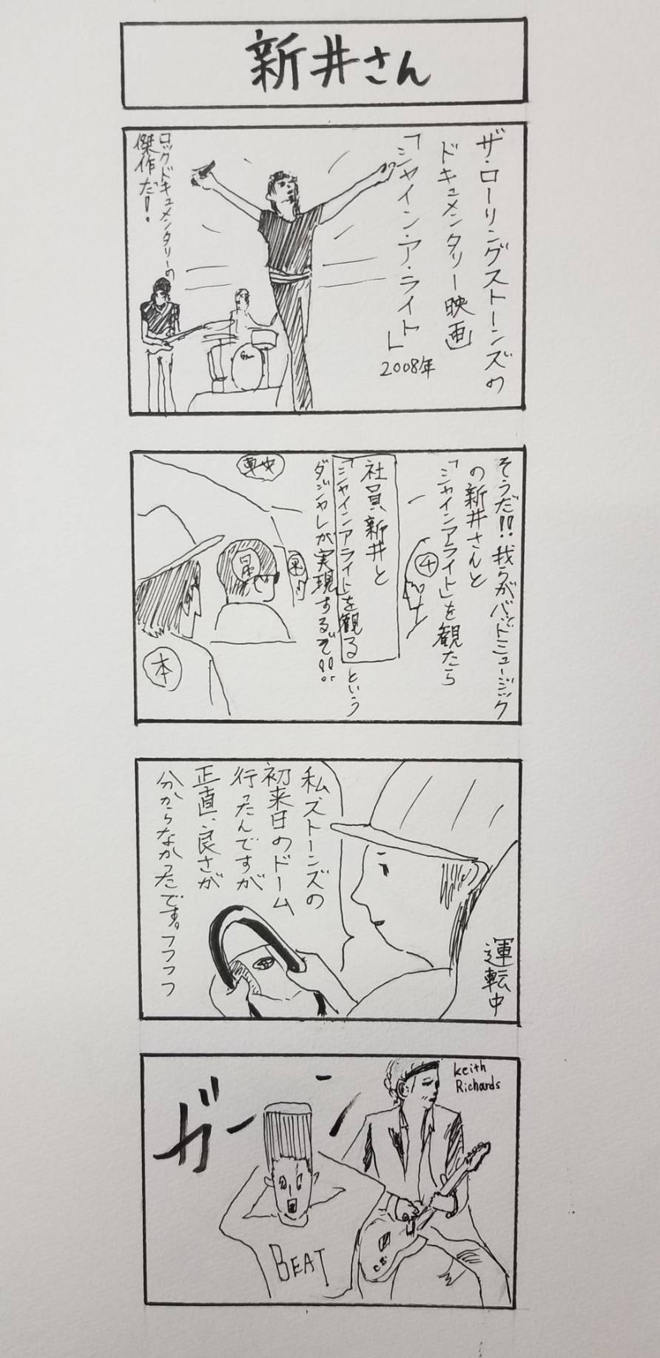 新井さん
ザ・ローリングストーンズの
ドキュメンタリー映画
「シャイン・ア・ライト」
2008年
ロックドキュメンタリーの
傑作だ！
そうだ!!我らがバットミュージック
の新井さんと
「シャインアライト」を観たら
社員新井と
「シャインアライト」を観る という
ダジャレが実現するぞ!!
車中
本
私、ストーンズの
初来日のドーム
行ったんですが
正直、良さが
分からなかったです。フフフフ
運転中
keith
Richards
ガーン
BEAT